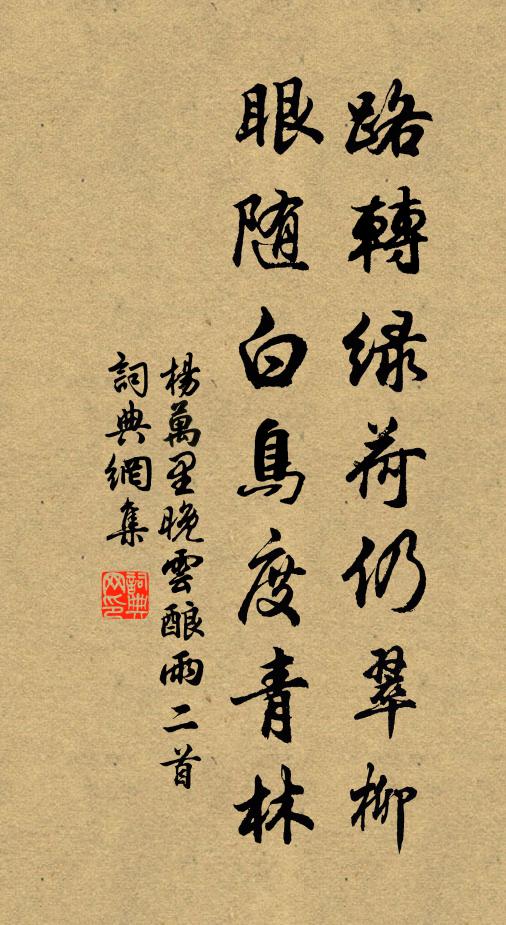 路轉绿荷仍翠柳
眼随白鳥度青林
楊萬里晚雲酿雨二首
詞典網集
詞典网印